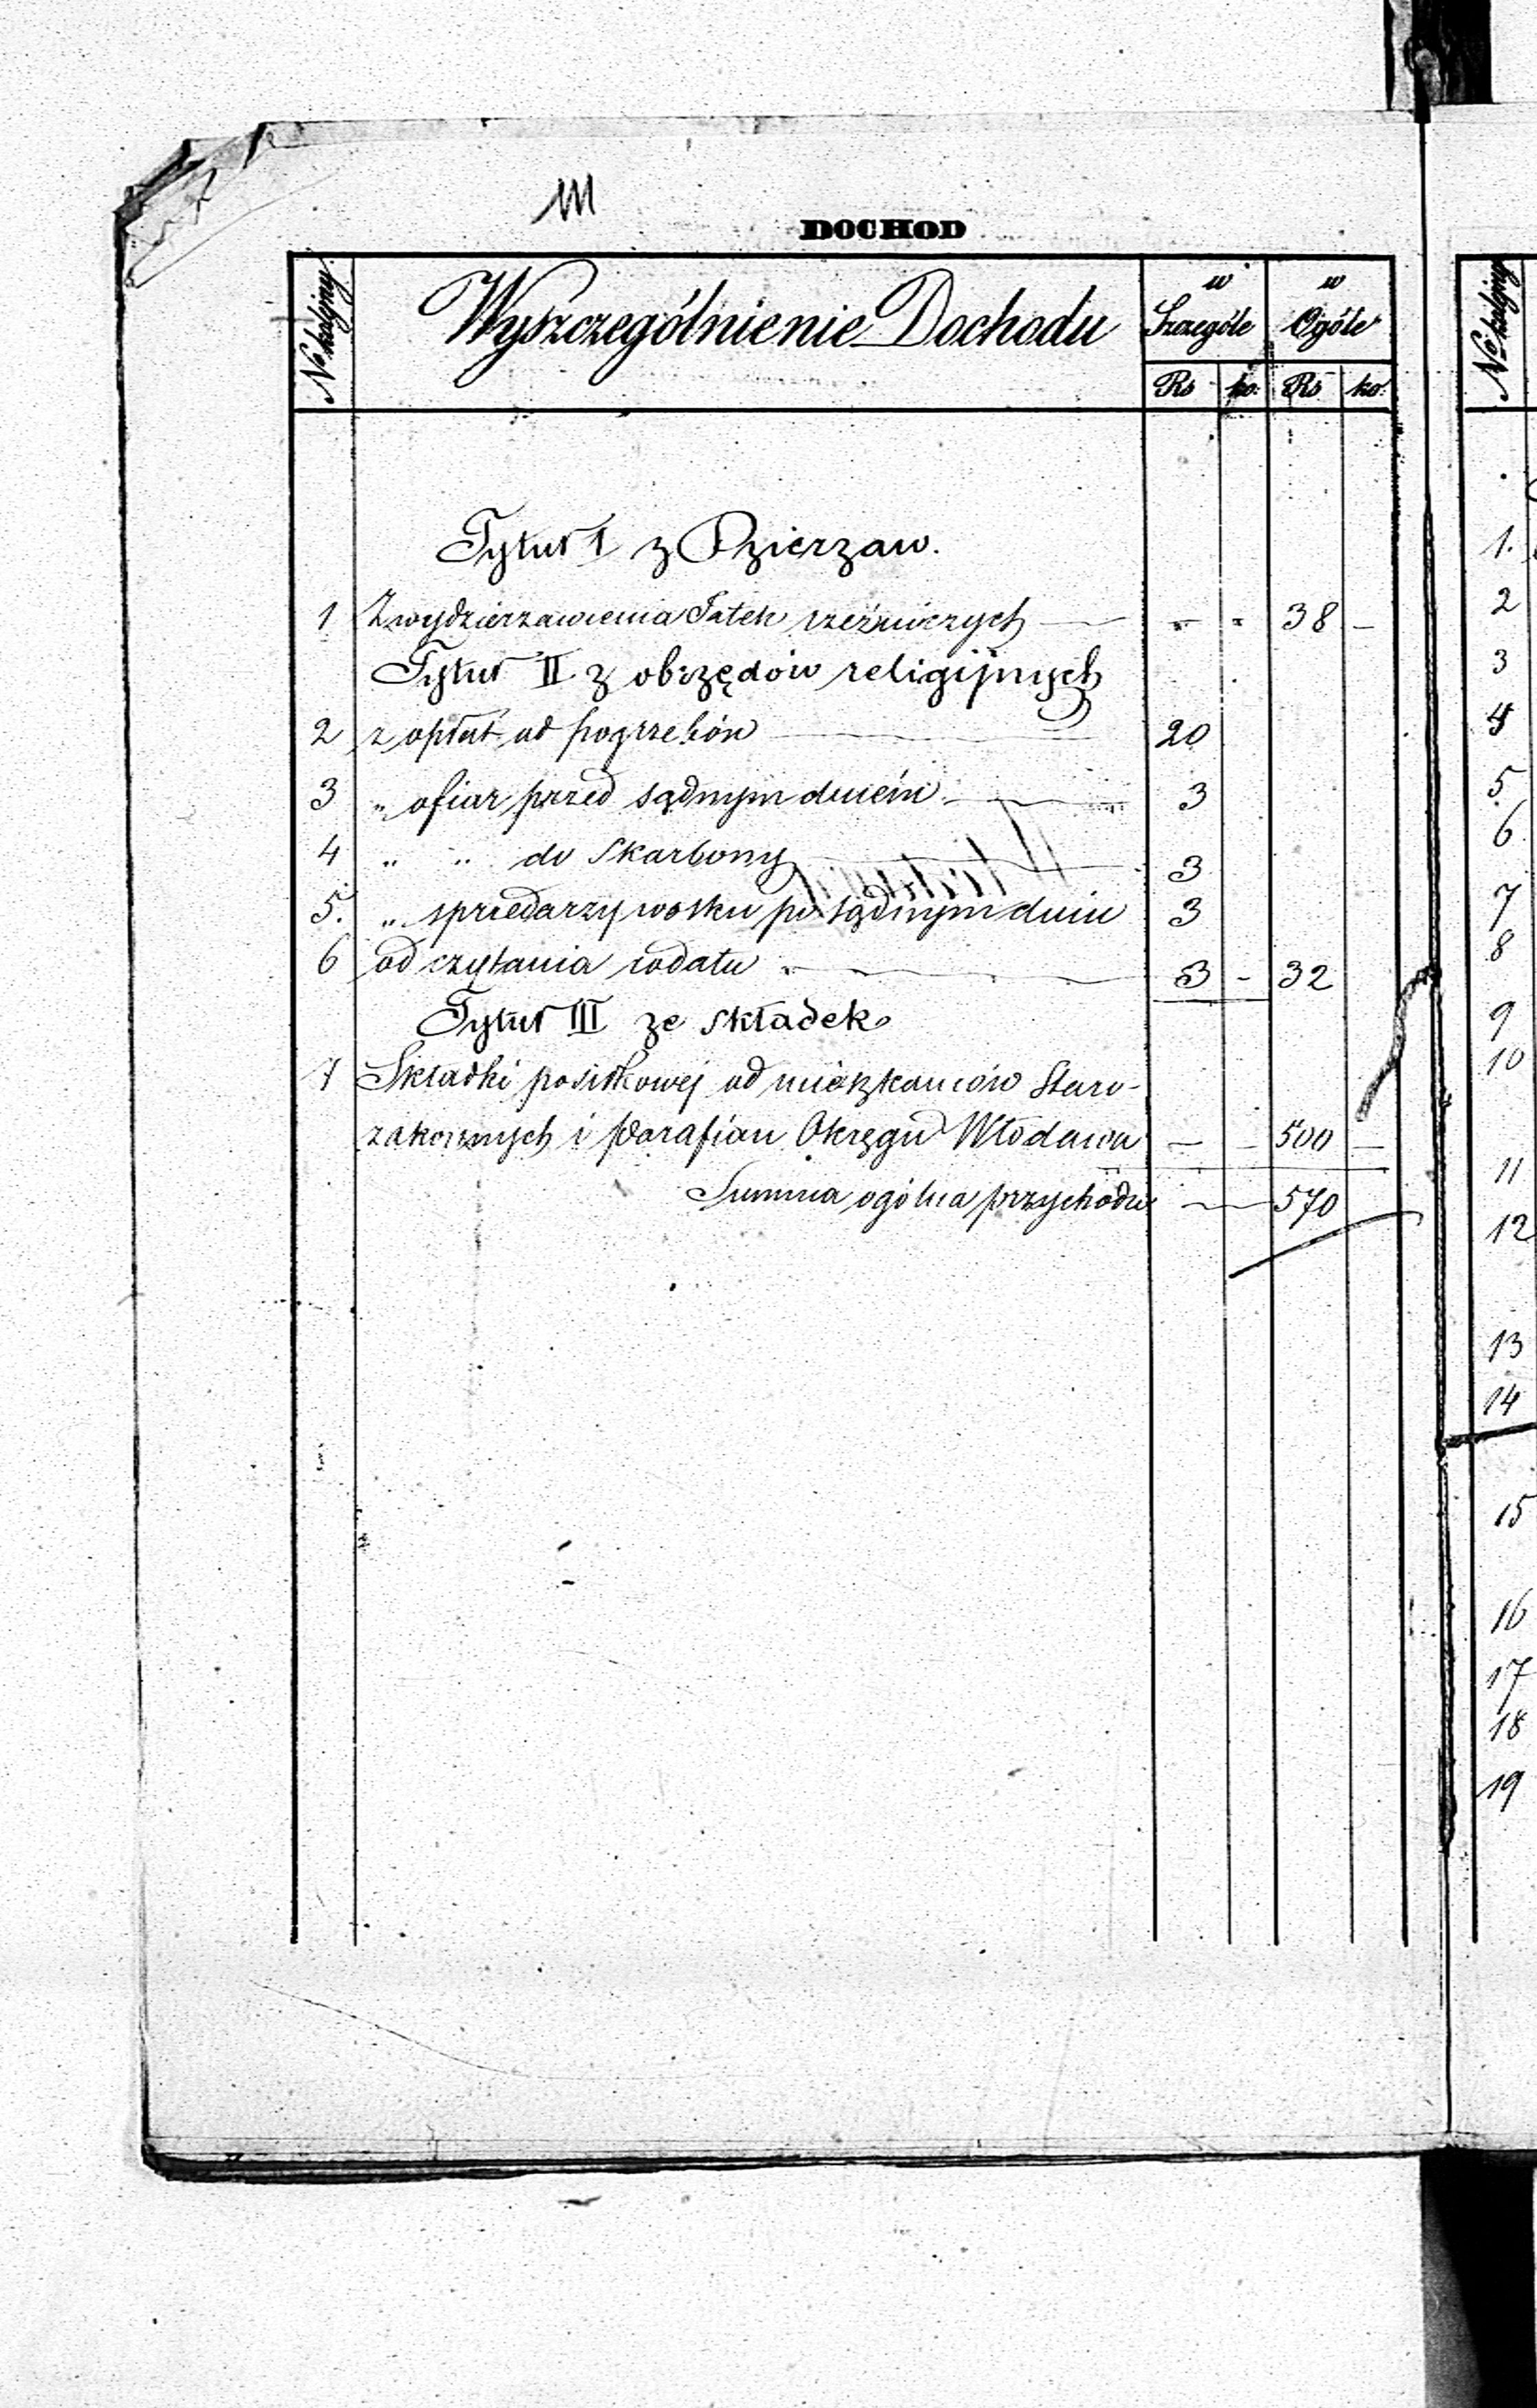 DOCHOD
No kolejny
Wyszczególnienie Dochodu
w Szczególe
w Ogóle
Rs ko. Rs ko.
Tytuł I z Dzierzaw.
1 Z wydzierzawienia Jatek rzeźniczych — " " 38 –
Tytuł II z obrzędów religijnych
2 z opłat od pogrzebów 20
3 " ofiar przed sądnym dniem 3
4 " " do skarbony 3
5. " spriedarzy wosku po sądnym dniu 3
6 od czytania rodału 3 – 32
Tytuł III ze składek
7 Składki posiłkowej od mieszkanców Staro-
zakonnych i Parafian Okręgu Włodawa — – 500 —
Summa ogólna przychodu — 570
No kolejny
1.
2
3
4
5
6
7
8
9
10
11
12
13
14
15
16
17
18
19